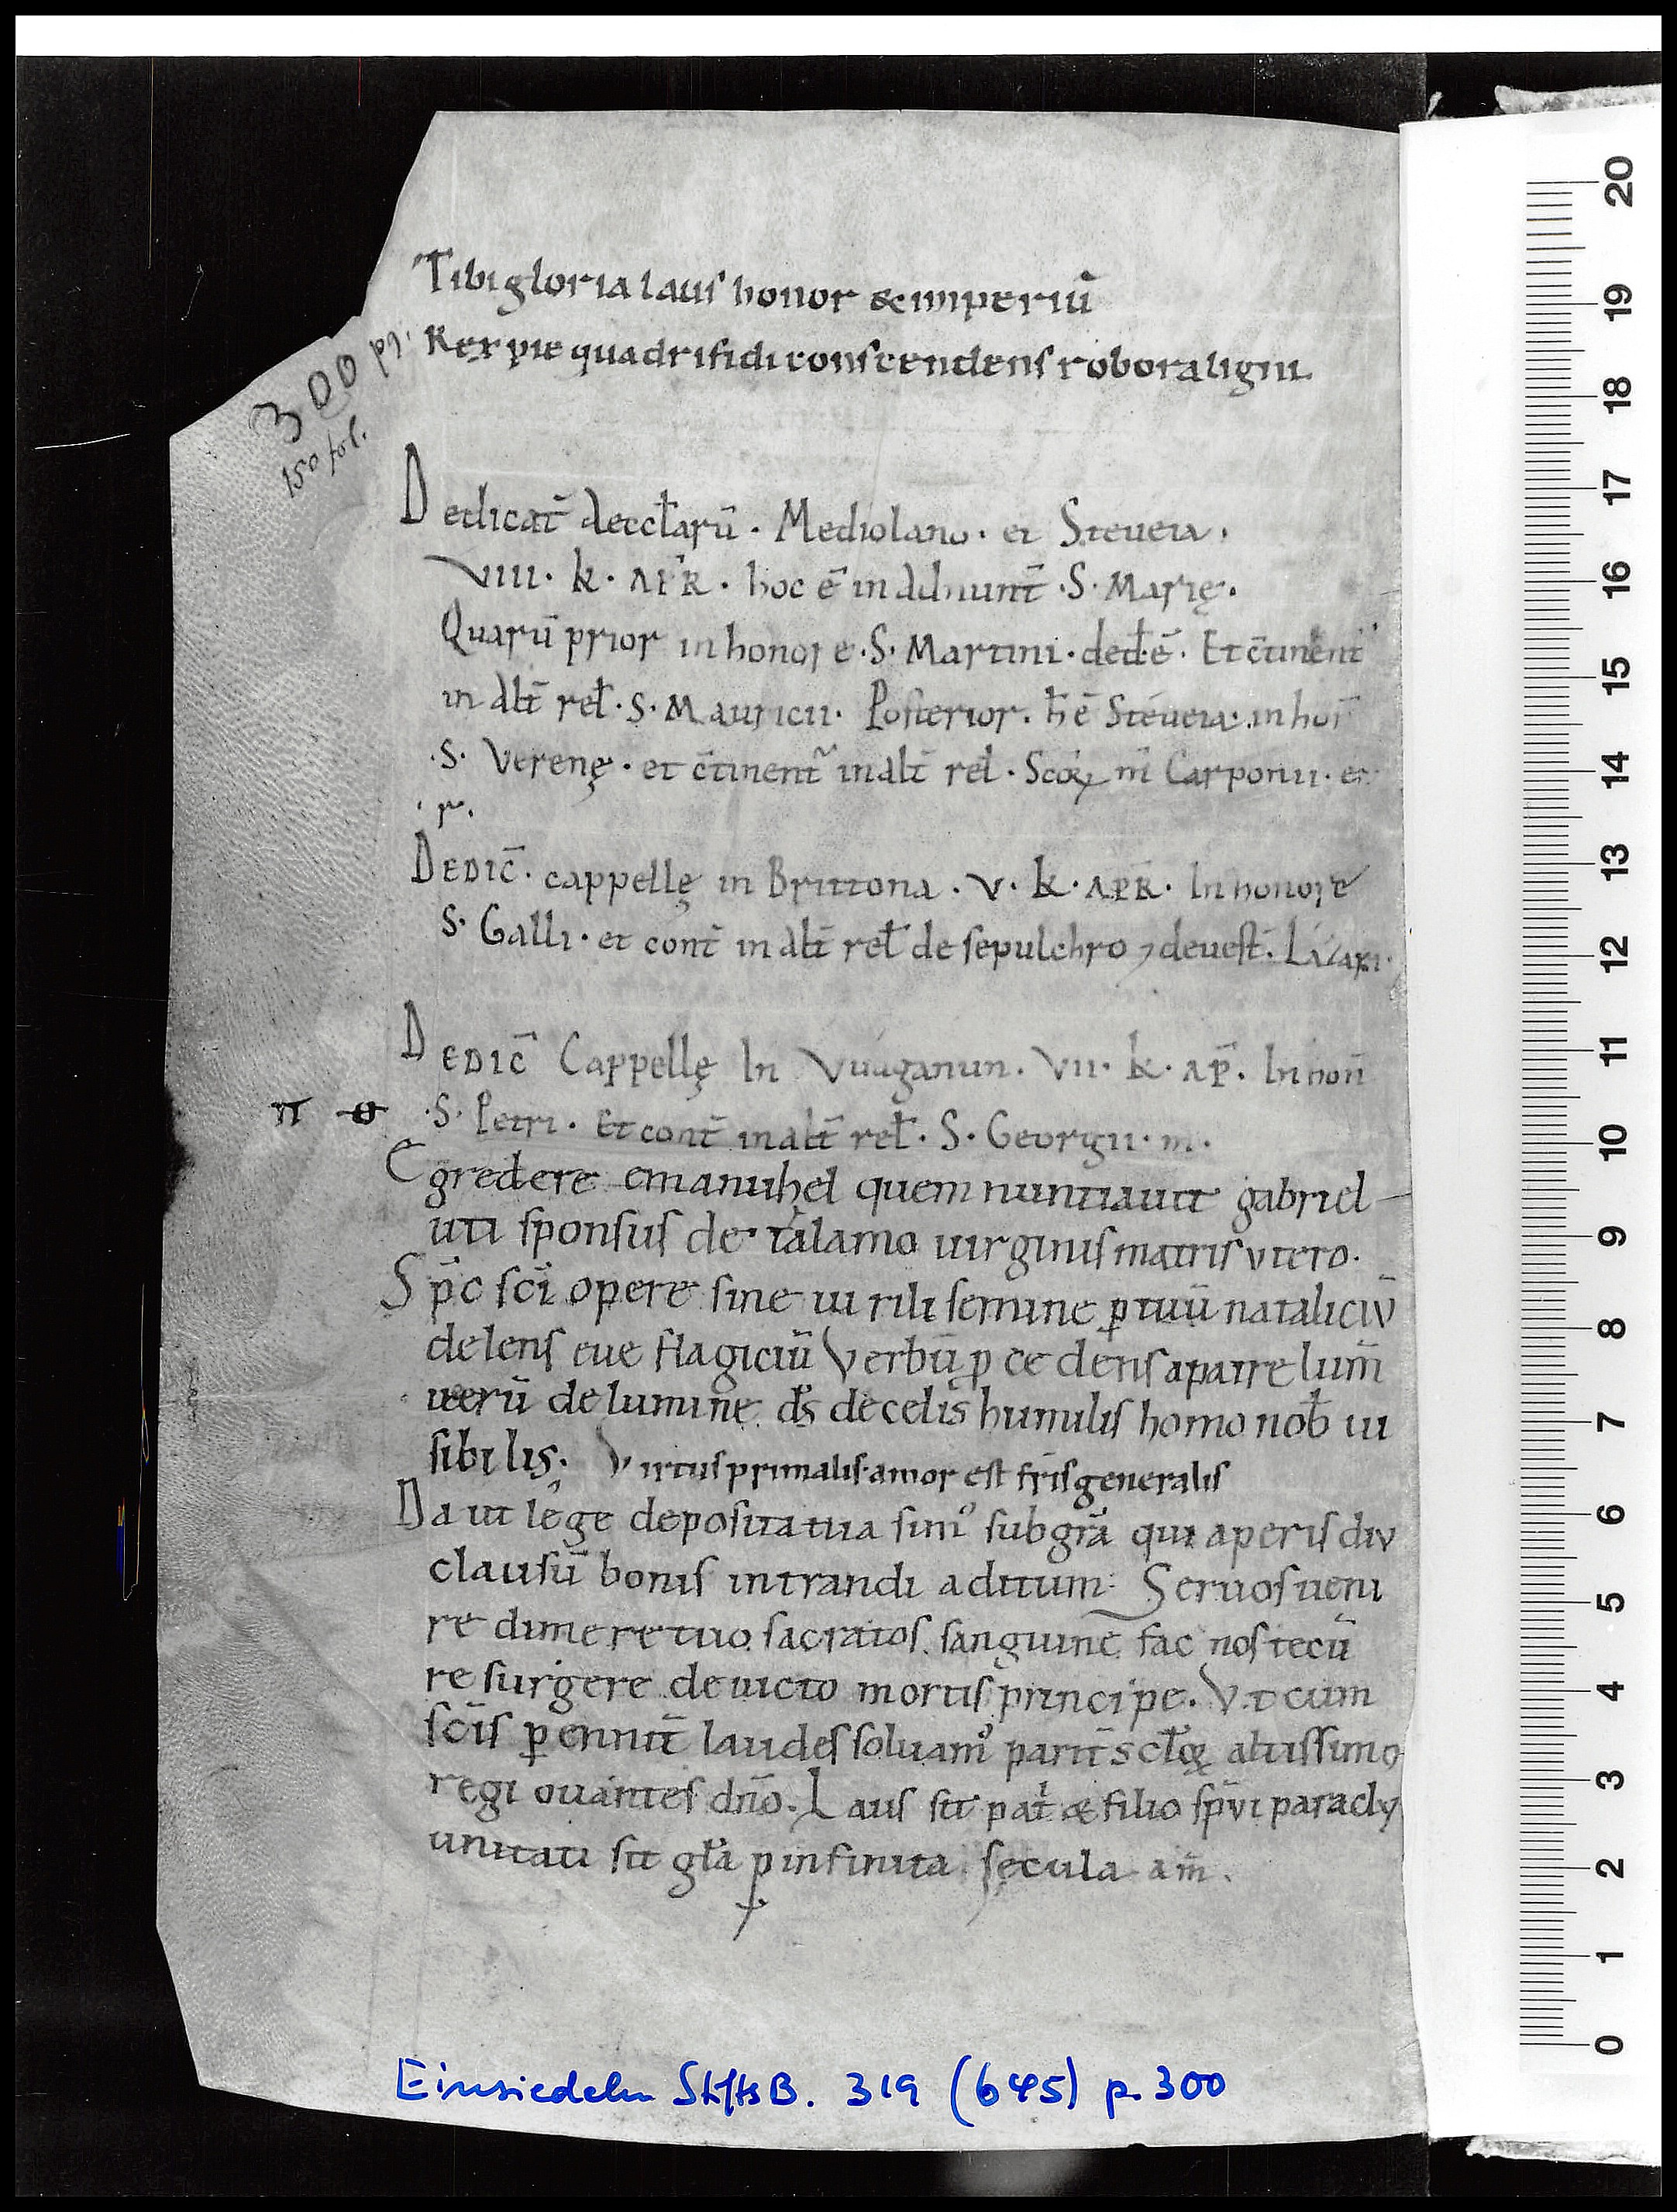 Tibi gloria laus honor & imperiū
Rex pie quadrifidi conscendens robora ligni.
300 pg.
150 fol.
Dedicat̄ deeccl̄arū · Mediolano · et Steueia ·
VIII · k · APR · hoc ē in adnunt̄ · S · Marię ·
Quarū prior in honore · S · Martini · ded ē · Et c̄tinent̄
in alt̄ rel̄ · S · Mauricii · Posterior · h̄ ē Steueia · in hon̄
· S · Verenę · et c̄tinent̄ in alt̄ rel · Scoꝝ m̄ Carponii · et
· r ·
DEDIC̄ · cappellę in Brittona · V · k · APR · In honore
S · Galli · et cont̄ in alt̄ rel̄ de sepulchro ⁊ de uest̄ · Lazari ·
DEDIC̄ Cappellę In Vuaganun · VII · k · AP̄ · In hon̄
· S · Petri · Et cont̄ in alt̄ rel̄ · S · Georgii · m̄ ·
Egredere emanuhel quem nuntiauit gabriel
uti sponsus de talamo uirginis matris utero.
Sp̄c sc̄i opere sine uirili semine ꝑ tuū nataliciū
delens eue flagiciū Verbū ꝓcedens a patre lum̄
uerū de lumine d̄s de celis humilis homo nob̄ ui
sibilis; Virtus primalis amor est fr̄is generalis
Da ut lege deposita tua sim᾽ sub gr̄a qui aperis diu
clausū bonis intrandi aditum Seruos ueni
redimere tuo sacratos sanguine fac nos tecū
resurgere deuicto mortis principe. Vt cum
sc̄is ꝑennit̄ laudes soluam᾽ parit̄ scl̄oꝝ altissimo
regi ouantes dn̄o. Laus sit pat̄ & filio sp̄ui paracly
unitati sit gl̄a ꝑ infinita secula am̄.
Einsiedeln StiftsB. 319 (645) p. 300
0 1 2 3 4 5 6 7 8 9 10 11 12 13 14 15 16 17 18 19 20